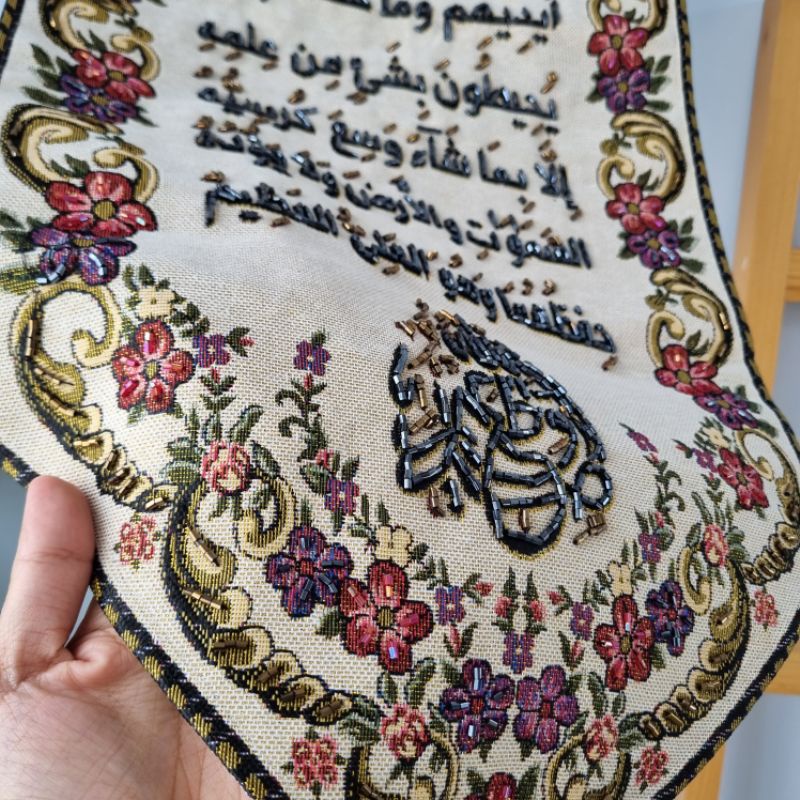 أيديهم وما
يحيطون بشئ من علمه
إلا بما شاء وسع كرسيه
السموات والأرض ولا يؤده
حفظهما وهو العلي العظيم